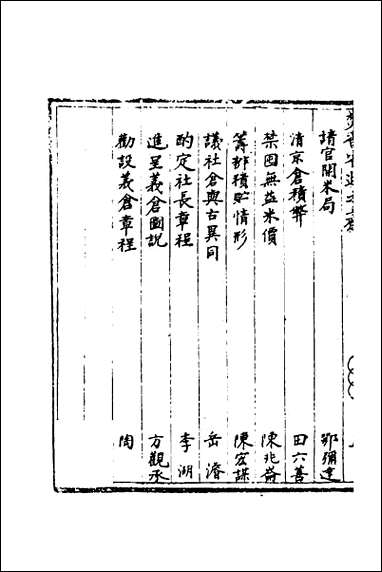 請官開米局 鄂彌達
清京倉積弊 田六善
禁囤無益米價 陳兆崙
籌郡積貯情形 陳宏謀
議社倉與古異同 岳濬
酌定社長章程 李湖
進呈義倉圖說 方觀承
勸設義倉章程 陶